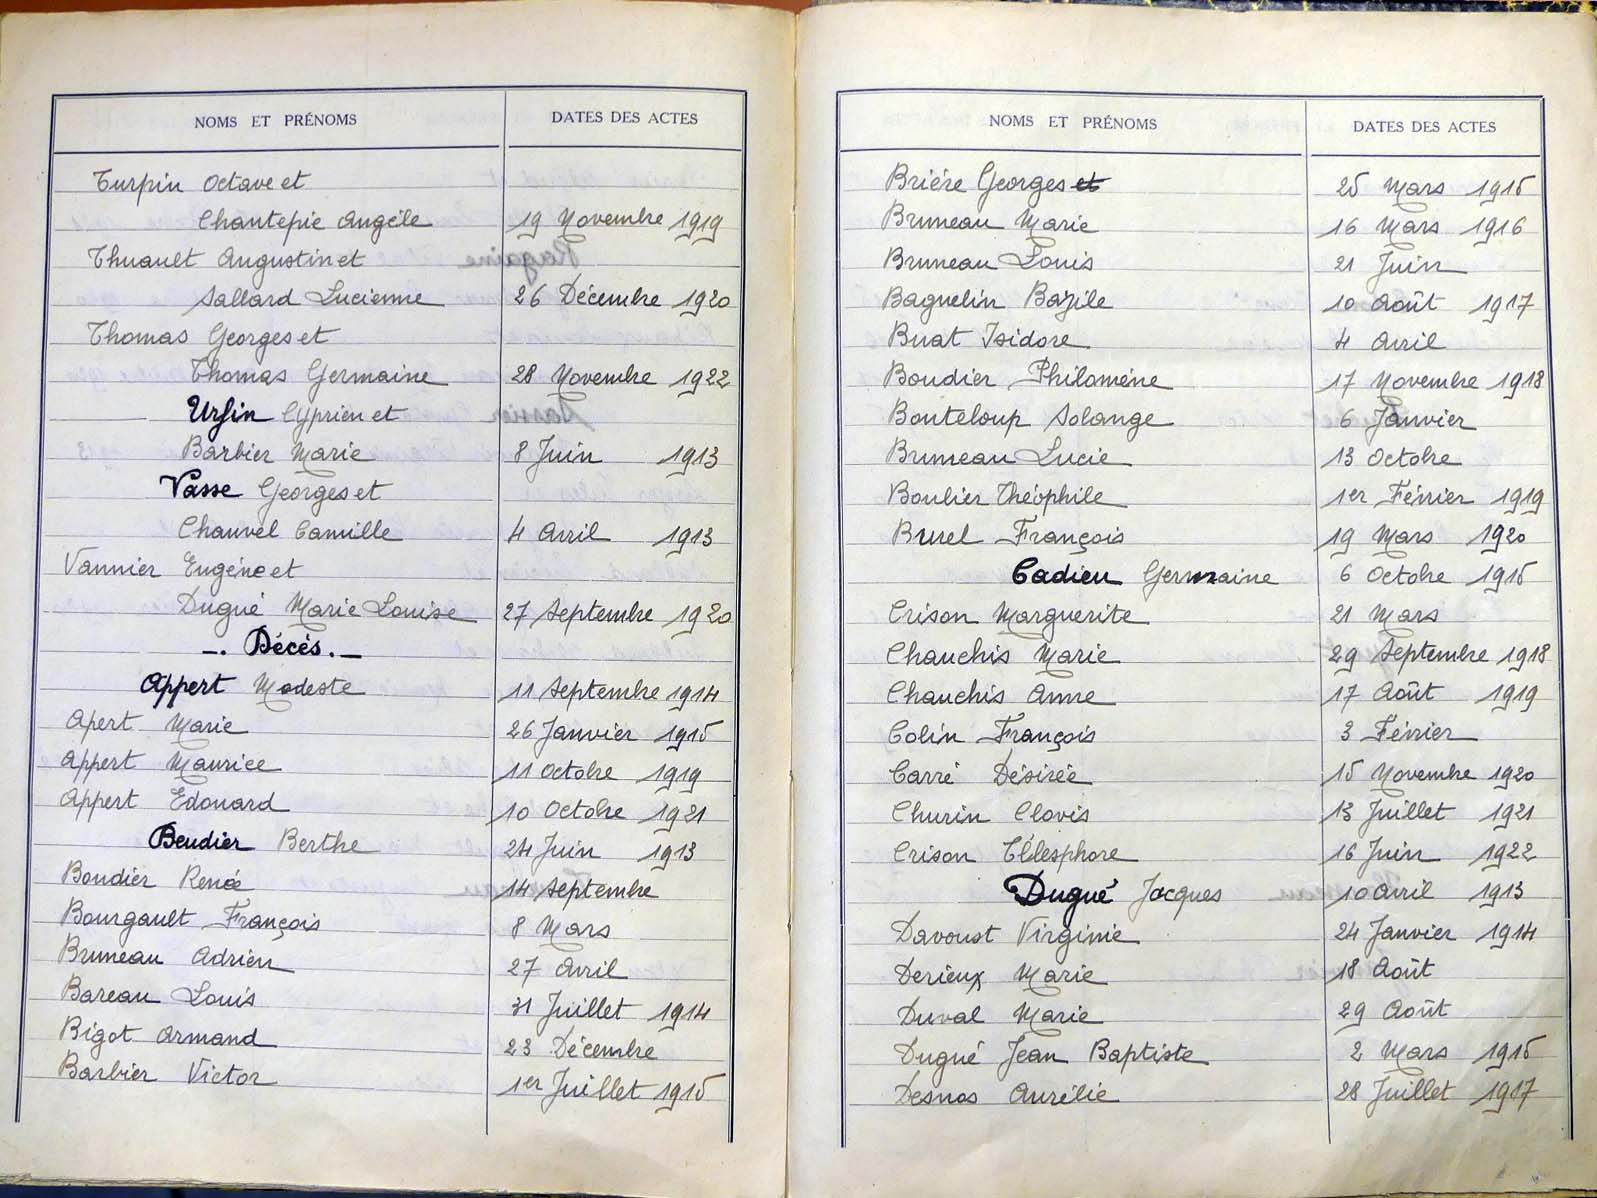 NOMS ET PRÉNOMS DATES DES ACTES
Turpin Octave et
Chantepie Angèle 19 Novembre 1919
Thuault Augustin et
Sallard Lucienne 26 Décembre 1920
Thomas Georges et
Thomas Germaine 28 Novembre 1922
Ursin Cyprien et
Barbier Marie 8 Juin 1913
Vasse Georges et
Chauvel Camille 4 Avril 1913
Vannier Eugène et
Dugué Marie Louise 27 Septembre 1920
-. Décés. -
Appert Modeste 11 Septembre 1914
Apert Marie 26 Janvier 1915
Appert Maurice 11 Octobre 1919
Appert Edouard 10 Octobre 1921
Beudier Berthe 24 Juin 1913
Boudier René 14 Septembre
Bourgault François 8 Mars
Bruneau Adrien 27 Avril
Bareau Louis 31 Juillet 1914
Bigot Armand 23 Décembre
Barbier Victor 1er Juillet 1915
NOMS ET PRÉNOMS DATES DES ACTES
Brière Georges et 25 Mars 1915
Bruneau Marie 16 Mars 1916
Bruneau Louis 21 Juin
Baguelin Bazile 10 Août 1917
Buat Isidore 4 Avril
Boudier Philomène 17 Novembre 1918
Bouteloup Solange 6 Janvier
Bruneau Lucie 13 Octobre
Boulier Théophile 1er Février 1919
Bruel François 19 Mars 1920
Cadieu Germaine 6 Octobre 1915
Crison Marguerite 21 Mars
Chauchis Marie 29 Septembre 1918
Chauchis Anne 17 Août 1919
Colin François 3 Février
Carré Désirée 15 Novembre 1920
Churin Clovis 13 Juillet 1921
Crison Télesphore 16 Juin 1922
Dugué Jacques 10 Avril 1913
Davoust Virginie 24 Janvier 1914
Derieux Marie 18 Août
Duval Marie 29 Août
Dugué Jean Baptiste 2 Mars 1915
Desnos Aurélie 28 Juillet 1917